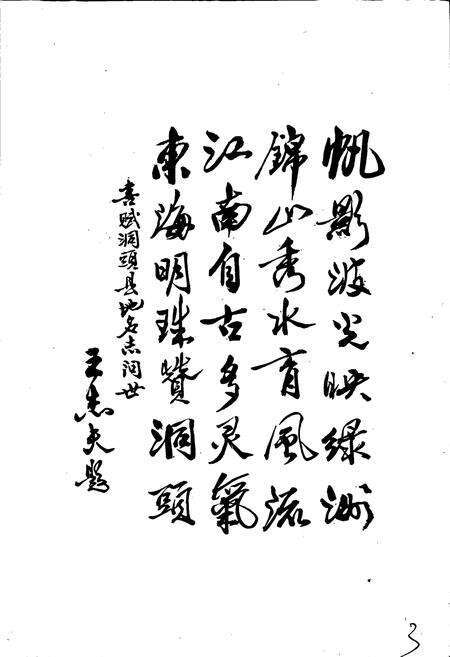 帆影波光映绿洲
錦山秀水育風流
江南自古多灵氣
東海明珠赞洞頭
喜赋洞頭县地名志问世
王志夫题
3